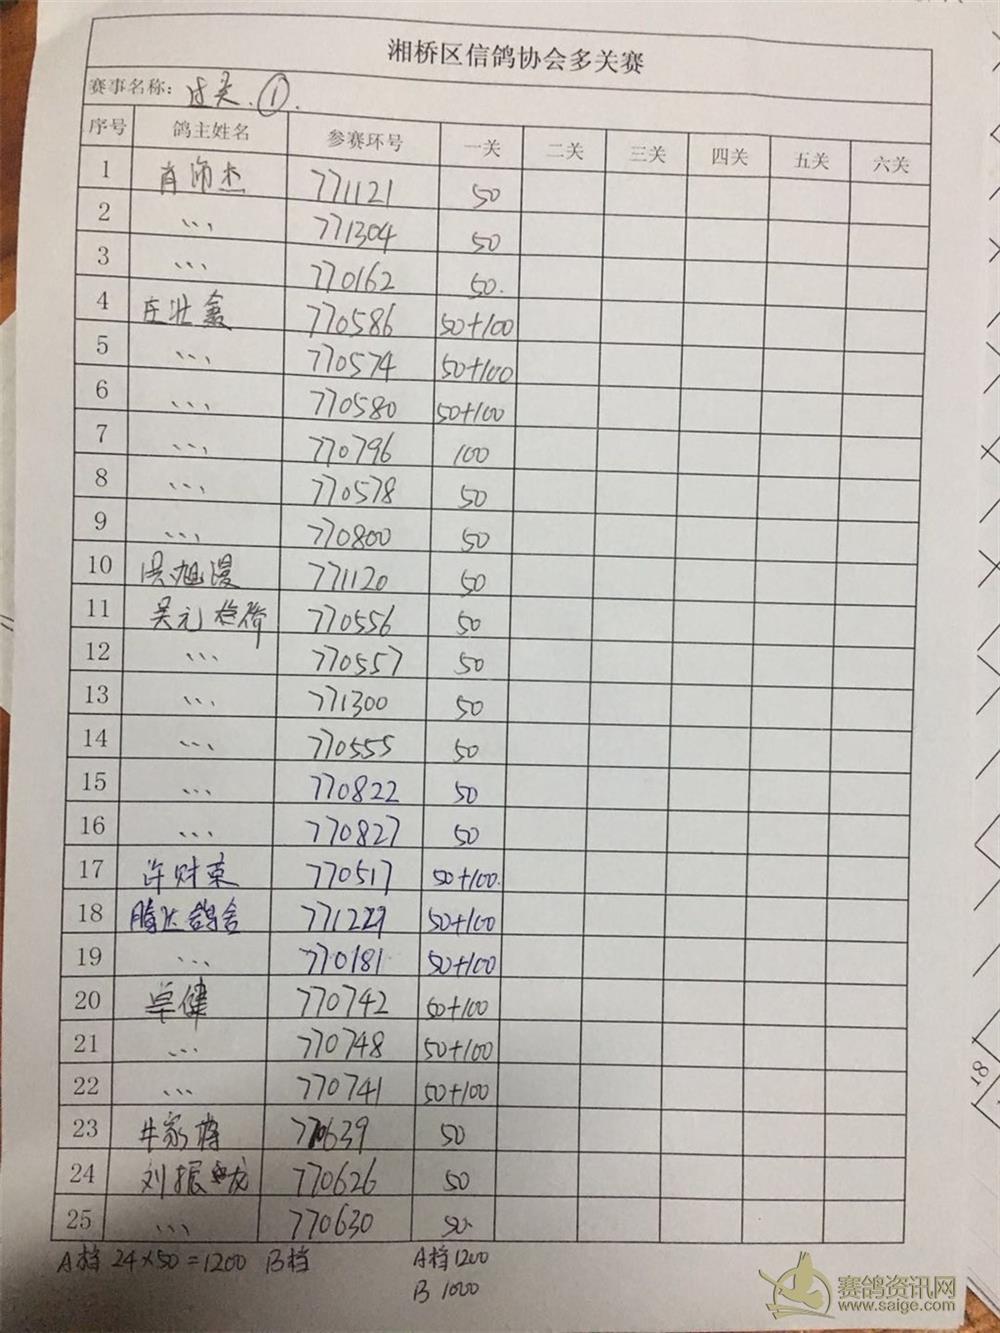 湘桥区信鸽协会多关赛
赛事名称: 过关.①.
序号 鸽主姓名 参赛环号 一关 二关 三关 四关 五关 六关
1 肖沛杰 771121 50
2 、、、 771304 50
3 、、、 770162 50.
4 庄壮鑫 770586 50+100
5 、、、 770574 50+100
6 、、、 770580 50+100
7 、、、 770796 100
8 、、、 770578 50
9 、、、 770800 50
10 旭漫 771120 50
11 吴元 770556 50
12 、、、 770557 50
13 、、、 771300 50
14 、、、 770555 50
15 、、、 770822 50
16 、、、 770827 50
17 许财荣 770517 50+100.
18 腾达鸽舍 771229 50+100
19 、、、 770181 50+100
20 卓健 770742 50+100
21 、、、 770748 50+100
22 、、、 770741 50+100
23 家 770639 50
24 刘振龙 770626 50
25 、、、 770630 50.
A档 24×50=1200 B档 A档1200
B 1000
18
赛鸽资讯网
www.saige.com